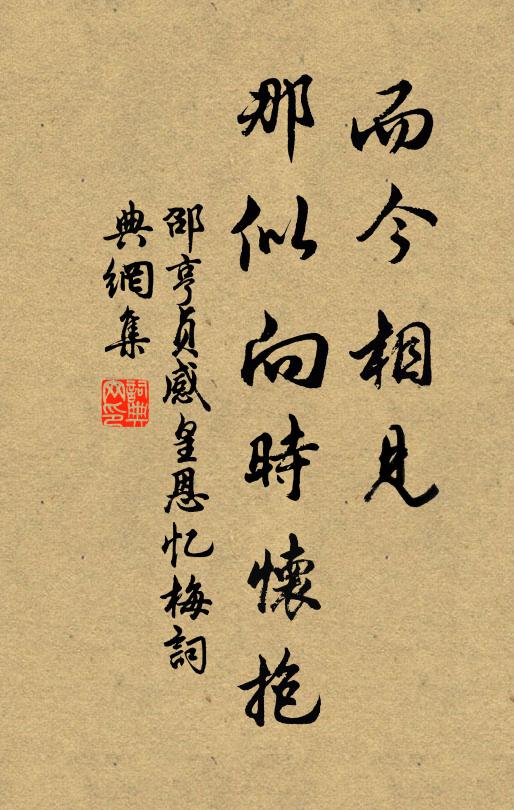 而今相見
那似向時懷抱
邵亨貞感皇恩忆梅詞
典網集
詞典
网印